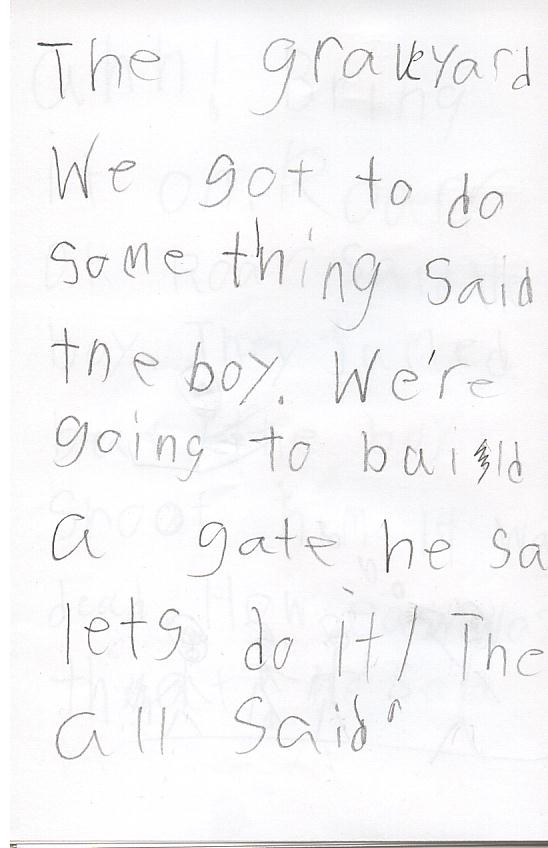 The graveyard
We got to do
some thing Said
the boy. We're
going to baild
a gate he sa
lets do it! The
all Said